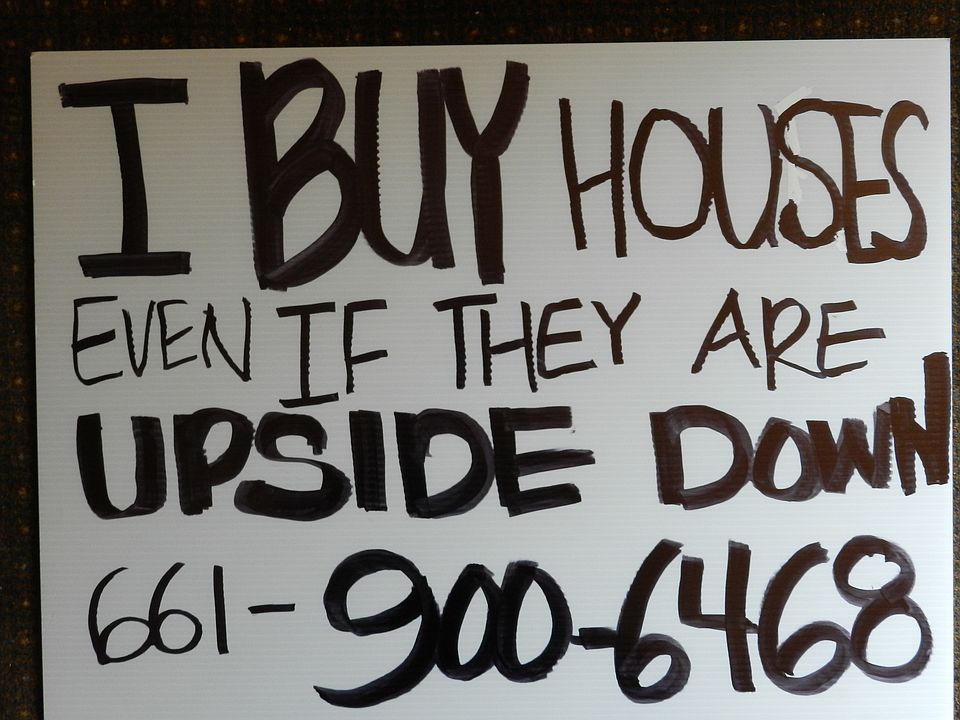 I BUY HOUSES
EVEN IF THEY ARE
UPSIDE DOWN
661-900-6468